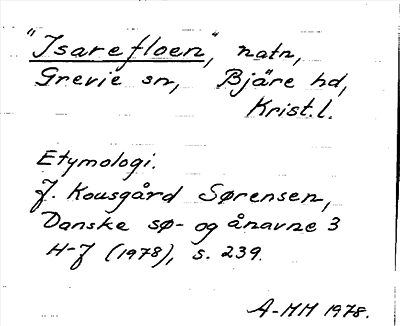 "Isarefloen", natn,
Grevie sn, Bjäre hd,
Krist.l.
Etymologi.
J. Kousgård Sørensen,
Danske sø- og ånavne 3
H-J (1978), s. 239.
A-MH 1978.